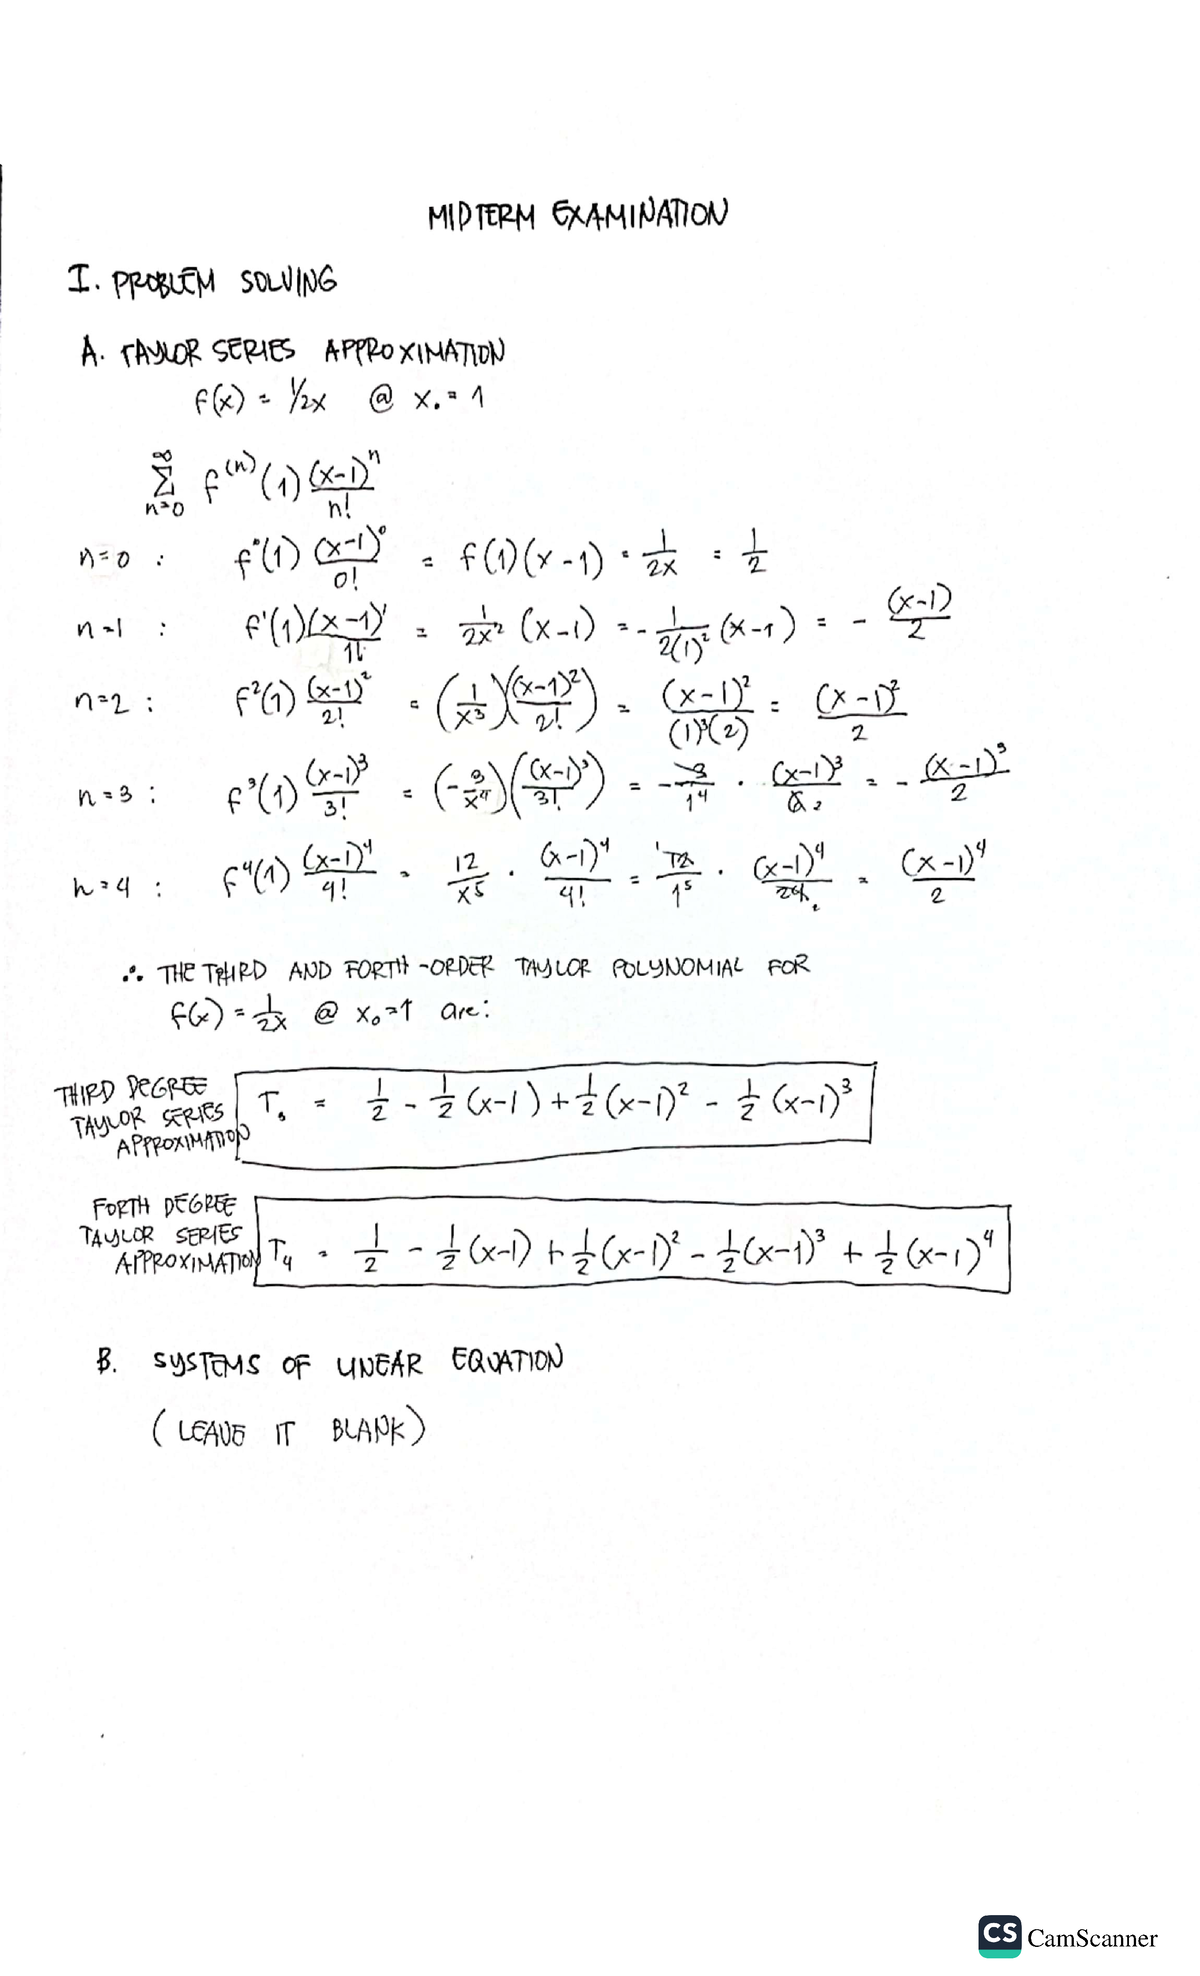 MIDTERM EXAMINATION
I. PROBLEM SOLVING
A. TAYLOR SERIES APPROXIMATION
f(x) = 1/2x @ x. = 1
∞ Σ n=0 f^(n)(1) (x-1)^n / n!
n=0 : f°(1) (x-1)^0 / 0! = f(1)(x-1) = 1/2x = 1/2
n=1 : f'(1)(x-1)' / 1! = 1/2x² (x-1) = - 1/2(1)² (x-1) = - (x-1)/2
n=2 : f²(1) (x-1)²/2! = (1/x³)((x-1)²/2!) = (x-1)²/(1)³(2) = (x-1)²/2
n=3 : f³(1) (x-1)³/3! = (-3/x⁴)((x-1)³/3!) = -3/1⁴ · (x-1)³/6 2 = - (x-1)³/2
n=4 : f⁴(1) (x-1)⁴/4! = 12/x⁵ · (x-1)⁴/4! = 1 12/1⁵ · (x-1)⁴/24 2 = (x-1)⁴/2
∴ THE THIRD AND FORTH-ORDER TAYLOR POLYNOMIAL FOR
f(x) = 1/2x @ x₀=1 are:
THIRD DEGREE
TAYLOR SERIES
APPROXIMATION
T₃ = 1/2 - 1/2 (x-1) + 1/2 (x-1)² - 1/2 (x-1)³
FORTH DEGREE
TAYLOR SERIES
APPROXIMATION
T₄ = 1/2 - 1/2 (x-1) + 1/2 (x-1)² - 1/2 (x-1)³ + 1/2 (x-1)⁴
B. SYSTEMS OF LINEAR EQUATION
(LEAVE IT BLANK)
CS CamScanner